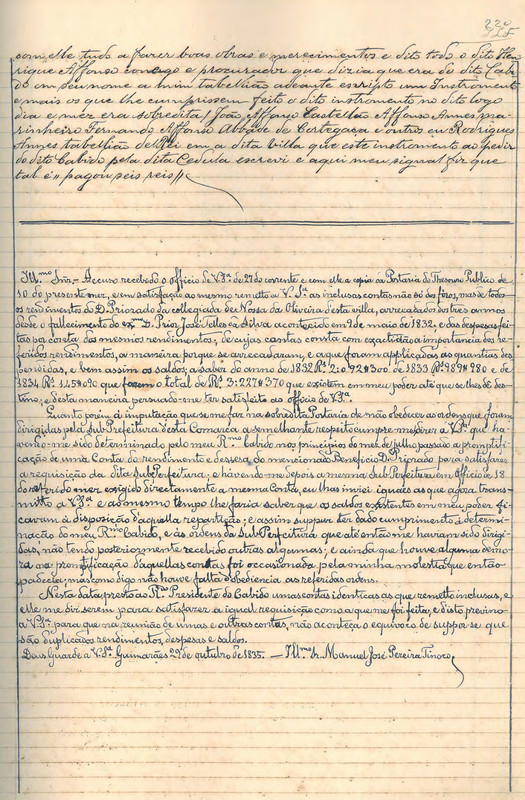 220
com elle tudo a fazer boas obras e merecimentos e dito todo o dito Hen
rique Affonso conego e procurador que dizia que era do dito Cabi
do em seu nome a mim tabellião adeante escripto um Instrumento
e mais os que lhe cumprissem feito o dito instrumento no dito logo
dia e mez era sobredita / João Affonso Castella Affonso Annes ma
rinheiro Fernando Affonso Abbade de Cortegaca e outros eu Rodrigues
Annes tabellião DelRei em a dita villa que este instrumento ao pedir
do dito Cabido pela dita Cedula escrevi e aqui meu signal fiz que
tal é // pagou seis reis //
Ill.mo Snr. - Accuso recebido o officio de V.Sª. de 27 do corrente e com elle a copia da Portaria do Thesouro Publico de
10 do presente mez, e em satisfação ao mesmo remetto a V. Sª. as inclusas contas não só dos foros, mas de todos
os rendimentos do D. Priorado da collegiada de Nossa da Oliveira desta villa, arrecadados dos tres annos
desde o fallecimento do ex.mo D. Prior José Telles da Silva acontecido em 9 de maio de 1832, e das despesas fei-
tas por conta dos mesmos rendimentos, de cujas contas consta com exactidão a importancia dos re-
feridos rendimentos, a maneira porque se arrecadaram, e a que foram applicadas as quantias des-
pendidas, e bem assim os saldos; a saber do anno de 1832 Rs. 2:092#300 de 1833 Rs. 989#980 e de
1834 Rs. 145#090 que foram o total de Rs. 3:227#370 que existem em meu poder até que se lhes dê des-
tino; e desta maneira persuado-me ter satisfeito ao officio de V.Sª.
Quanto porém á imputação que se me faz na sobredita Portaria de não obedecer as ordens que foram
dirigidas pela SubPrefeitura desta Comarca a semelhante respeito cumpre-me dizer a V.Sª. que ha-
vendo-me sido determinado pelo meu R.mo Cabido nos principios do mez de julho passado a promptifi-
cação de uma Conta do rendimento e dessesa do mencionado Beneficio D. Priorado para satisfazer
a requisição da dita SubPerfeitura; e havendo-me depois a mesma SubPerfeitura em Officio de 18
do referido mez exigido directamente a mesma Conta, eu lhas inviei iguaes as que agora trans-
mitto a V.Sª. e ao mesmo tempo lhe fazia saber que os saldos existentes em meu poder fi-
cavam á disposição daquella repartição; e assim suppuz ter dado cumprimento á determi-
nação do meu R.mo Cabido, e ás ordens da SubPerfeitura que até então me haviam sido dirigi-
das, não tendo posteriormente recebido outras algumas; e ainda que houve alguma demo-
ra na promptificação daquellas contas foi occasionada pela minha molestia que então
padecia; mas como digo não houve falta de obediencia as referidas ordens.
Nesta data presto ao R.mo Presidente do Cabido umas contas identicas as que remetto inclusas, e
elle me diz serem para satisfazer a igual requisição como a que me foi feita, e disto previno
a V.Sª. para que na reunião de umas e outras contas, não aconteça o equivoco de suppor-se que
são duplicados rendimentos, despesas e saldos.
Deus Guarde a V.Sª. Guimarães 29 de outubro de 1835. - Ill.mo Sr. Manuel José Pereira Tinoco,